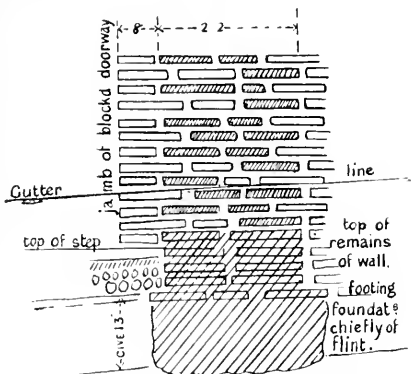 8
2 2
jamb of blockd doorway
line
Gutter
top of step
top of
remains
of wall.
footing
foundatⁿ
chiefly of
flint.
OVE 13"